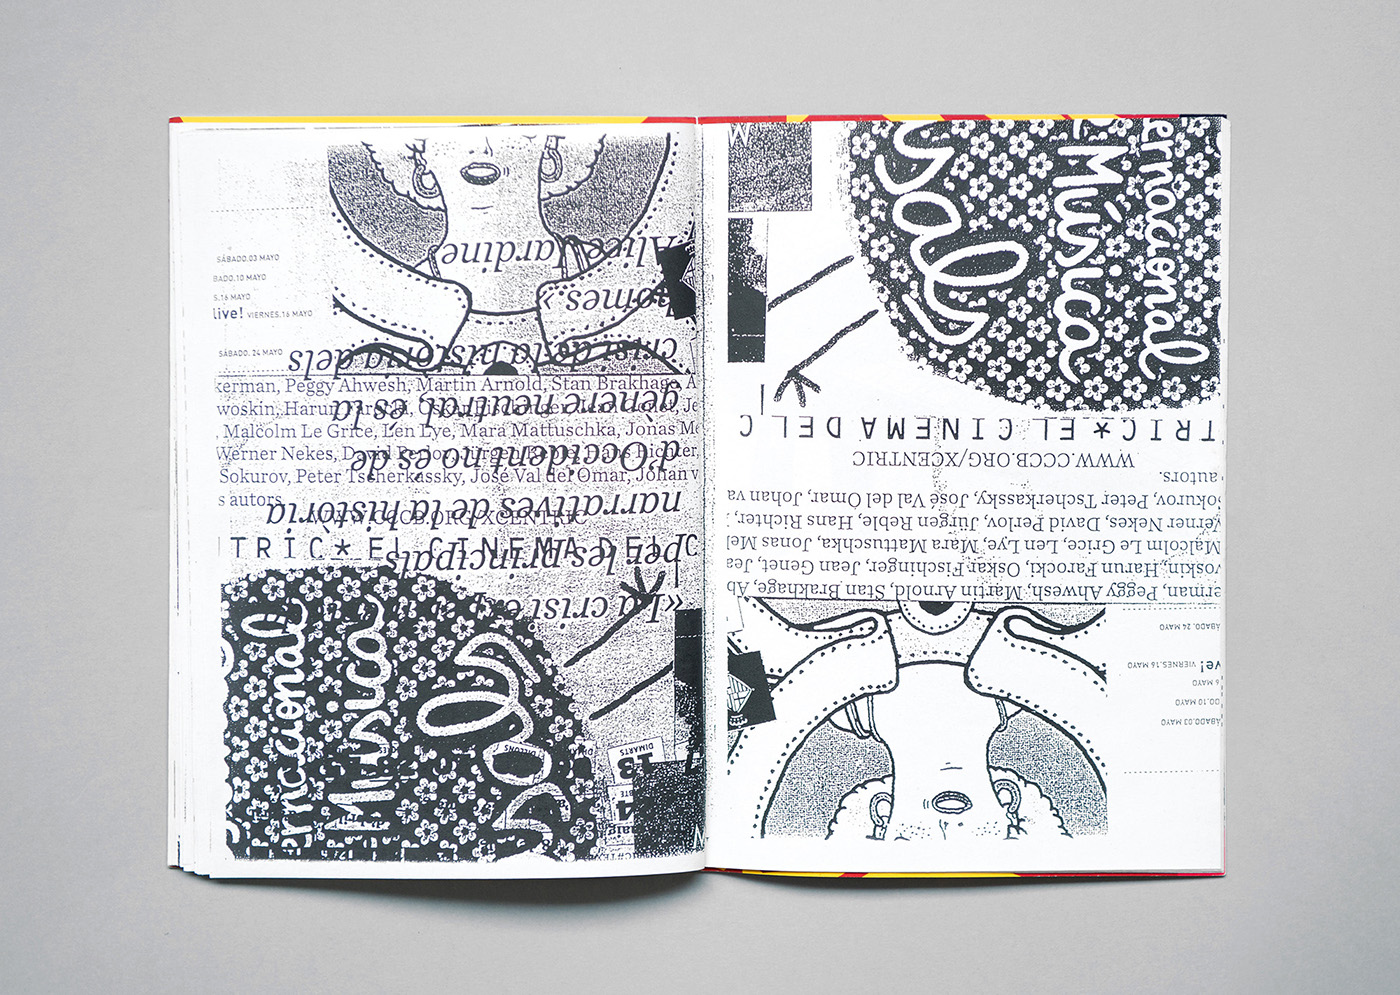 SÁBADO.03 MAYO
BADO.10 MAYO
S.16 MAYO
live! VIERNES.16 MAYO
SÁBADO. 24 MAYO
kerman, Peggy Ahwesh, Martin Arnold, Stan Brakhage, A
woskin, Harun Farocki, Oskar Fischinger, Jean Genet, Je
, Malcolm Le Grice, Len Lye, Mara Mattuschka, Jonas Me
Werner Nekes, David Perlov, Jürgen Reble, Hans Richter,
Sokurov, Peter Tscherkassky, José Val del Omar, Johan v
s autors.
WWW.CCCB.ORG/XCENTRIC
TRIC* EL CINEMA DEL C
«La crisi
per les principals
narratives de la història
d'Occident no és de
gènere neutral, és la
crisi de la història dels
homes.»
Alice Jardine
ernacional
Música
Sala
DIMARTS
13
24
maig
W
Sala
Música
ernacional
TRIC* EL CINEMA DEL C
WWW.CCCB.ORG/XCENTRIC
autors.
Sokurov, Peter Tscherkassky, José Val del Omar, Johan va
Werner Nekes, David Perlov, Jürgen Reble, Hans Richter,
Malcolm Le Grice, Len Lye, Mara Mattuschka, Jonas Me
voskin, Harun Farocki, Oskar Fischinger, Jean Genet, Jea
erman, Peggy Ahwesh, Martin Arnold, Stan Brakhage, Ab
ÁBADO. 24 MAYO
ve! VIERNES.16 MAYO
6 MAYO
DO.10 MAYO
ÁBADO.03 MAYO